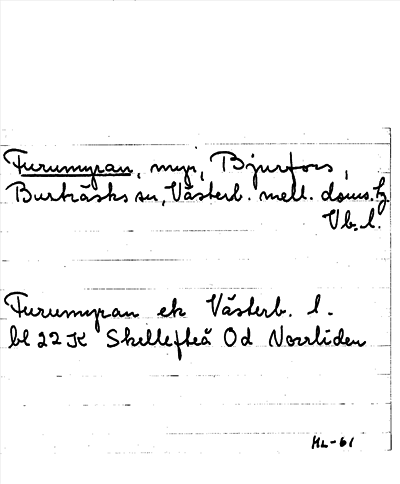 Furumyran, myr, Bjurfors,
Burträsks sn, Västerb. mell. doms. hg
Vb. l.
Furumyran ek Västerb. l.
bl 22 K Skellefteå Od Norrliden
ML-61